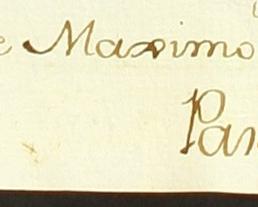 e Maximo
Par